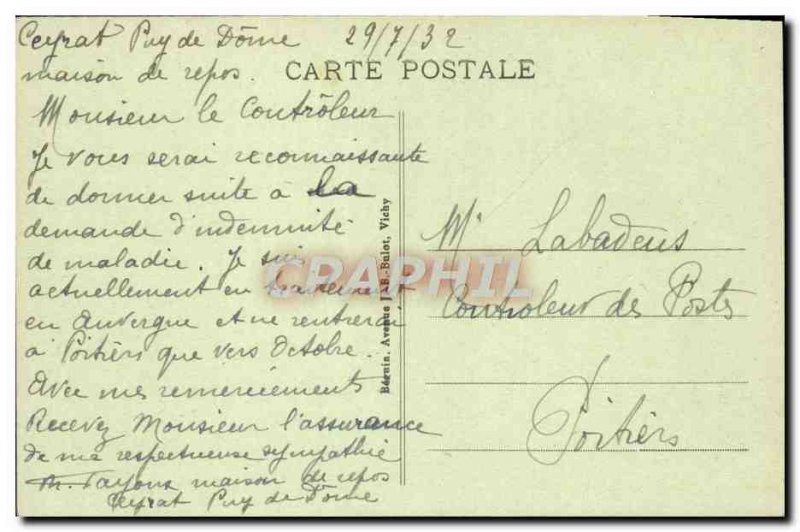 Ceyrat Puy de Dôme 29/7/32
maison de repos.
CARTE POSTALE
Monsieur le Contrôleur
Je vous serai reconnaissante
de donner suite à la
demande d'indemnité
de maladie. Je suis
actuellement en traitement
en Auvergne et ne rentrerai
à Poitiers que vers Octobre.
Avec mes remerciements
Recevez Monsieur l'assurance
de ma respectueuse sympathie
maison de repos
Ceyrat Puy de Dôme
Béguin, Avenue J.-B.-Bulot, Vichy
CPAPHIL
Mr Labadens
Controleur des Postes
Poitiers